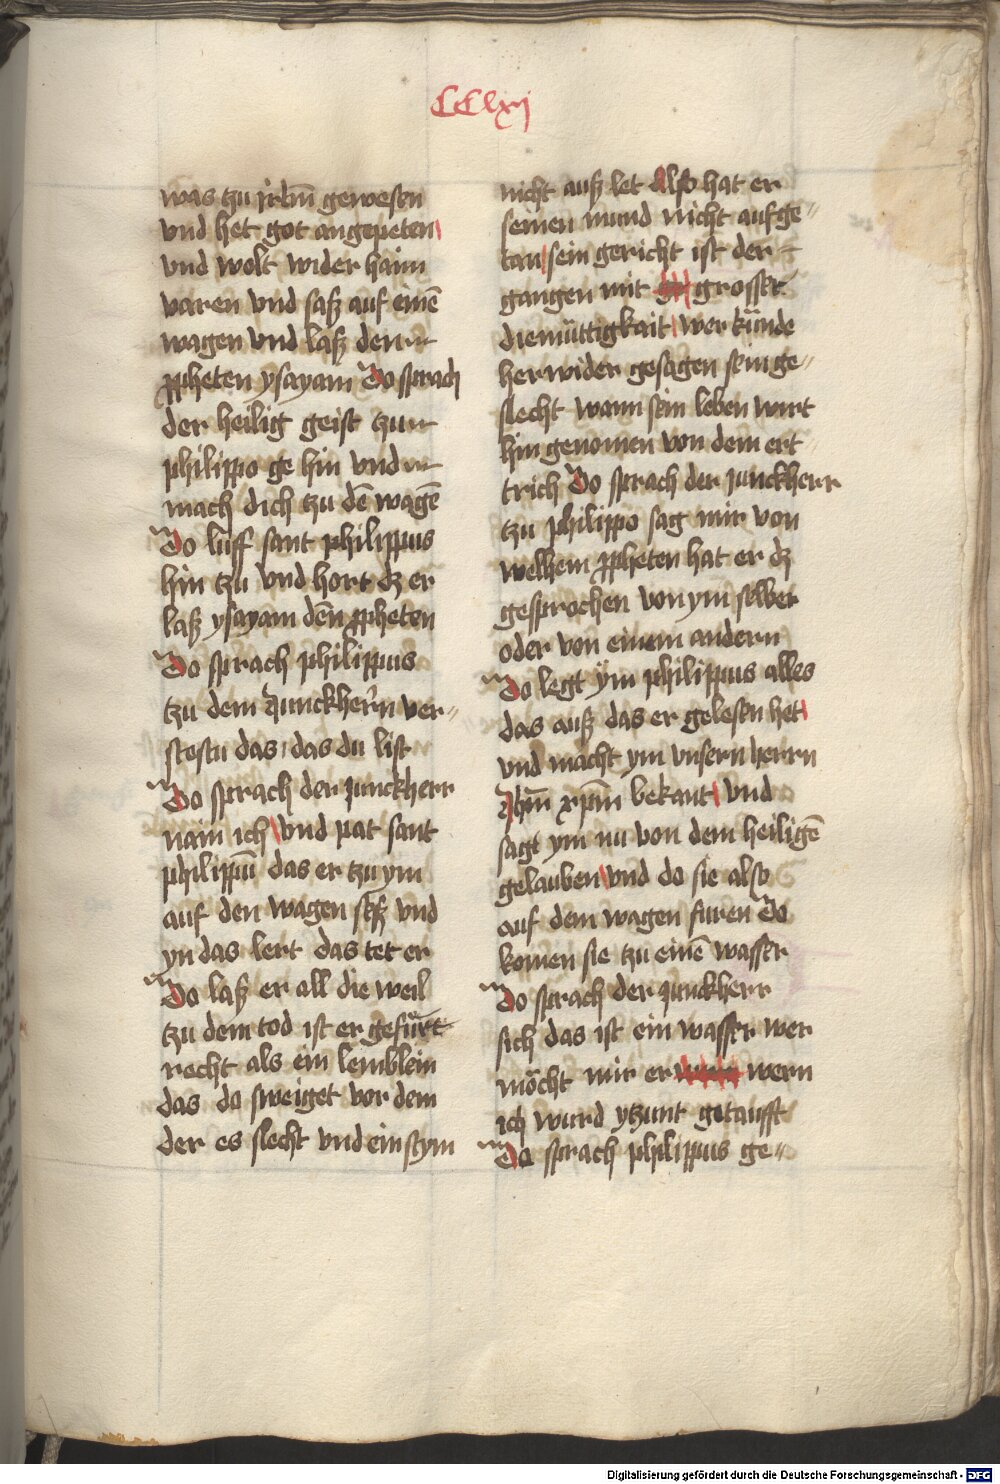 CClxj
was tzu jrl̄m gewesen
vnd het got angepeten
vnd wolt wider haim
varen vnd saß auf einē
wagen vnd laß den
ꝓpheten ysayam Do sprach
der heilig geist tzu
philippo ge hin vnd
mach dich tzu dē wagē
Do luff sant philippus
hin tzu vnd hort dz er
laß ysayam dēn ꝓpheten
Do sprach philippus
tzu dem Junckherrn ver„
stestu das das du list
Do sprach der junckherr
nain ich vnd pat sant
philippū das er tzu ym
auf den wagen seß vnd
yn das lert das tet er
Do laß er all die weil
tzu dem tod ist er gefürt
recht als ein lemblein
das do sweiget vor dem
der es slecht vnd ein stym
nicht auß let Also hat er
seinen mund nicht aufge„
tan sein gericht ist der
gangen mit grosser
diemüttigkait wer künde
her wider gesagen sein ge„
slecht wann sein leben wirt
hin genomen von dem ert
trich Do sprach der junckherr
tzu philippo sag mir von
welhem ꝓpheten hat er dz
gesprochen von ym selber
oder von einem andern
Do legt ym philippus alles
das auß das er gelesen het
vnd macht ym vnsern herrn
Jhm̄ xpm̄ bekant vnd
sagt ym nu von dem heiligē
gelauben vnd do sie also
auf dem wagen furen Do
komen sie tzu einē wasser
Do sprach der junckherr
sich das ist ein wasser wer
möcht mir er wern
ich wurd ytzunt getaufft
Do sprach philippus ge„
Digitalisierung gefördert durch die Deutsche Forschungsgemeinschaft - DFG